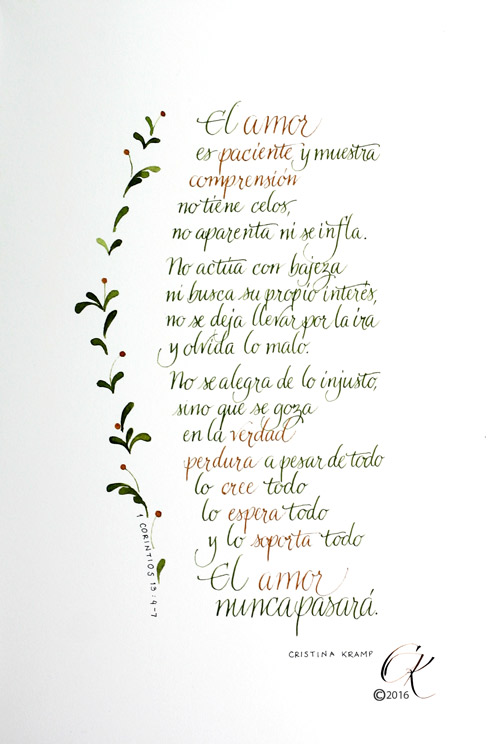 El amor
es paciente y muestra
comprensión
no tiene celos,
no aparenta ni se infla.
No actúa con bajeza
ni busca su propio interés,
no se deja llevar por la ira
y olvida lo malo.
No se alegra de lo injusto,
sino que se goza
en la verdad
perdura a pesar de todo
lo cree todo
lo espera todo
y lo soporta todo
El amor
nunca pasará.
1 CORINTIOS 13:4-7
CRISTINA KRAMP
CK
©2016